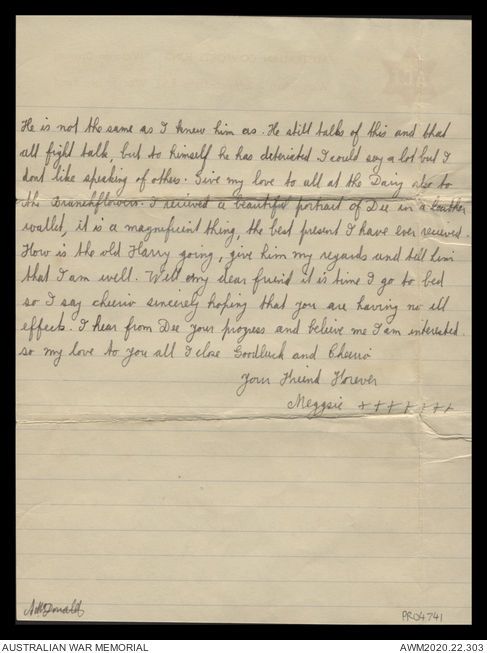 He is not the same as I knew him as. He still talks of this and that
all fight talk, but to himself he has detoriated I could say a lot but I
dont like speaking of others. Give my love to all at the Dairy also to
the Branchflowers. I recieved a beautiful portrait of Dee in a leather
wallet, it is a magnificent thing, the best present I have ever recieved.
How is the old Harry going, give him my regards and tell him
that I am well. Well my dear friend it is time I go to bed
so I say cheerio sincerely hoping that you are having no ill
effects. I hear from Dee your progress and believe me I am interested.
so my love to you all I close Goodluck and Cheerio
Your Friend Forever
Meggsie xxxxxxx
McDonald
PR04741
AUSTRALIAN WAR MEMORIAL
AWM2020.22.303